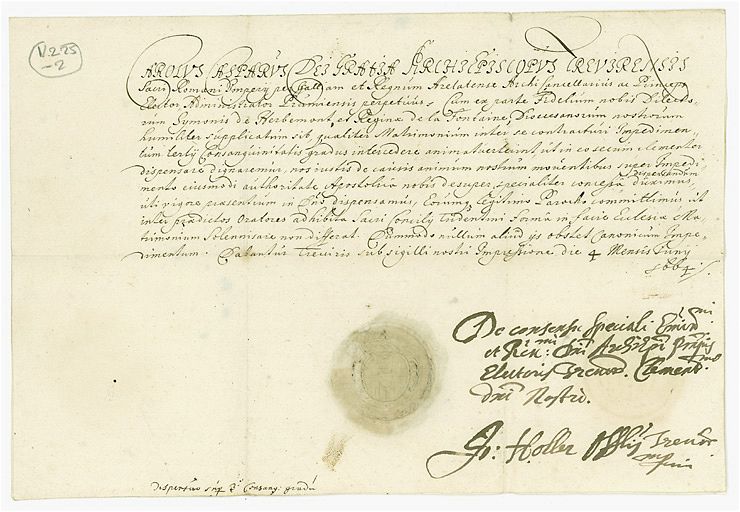 V 225
-2
CAROLVS CASPARVS DEI GRATIA ARCHIEPISCOPVS TREVIRENSIS
Sacri Romani Imperij per Galliam et Regnum Arelatense Archi Cancellarius ac Princeps
Elector, Administrator Prumiensis perpetuus. Cum ex parte Fidelium nobis Dilecto-
rum Symonis de Herbemont, et Reginæ de la Fontaine, Diocesanorum nostrorum
humiliter supplicatum sit, qualiter Matrimonium inter se contracturi Impedimen-
tum tertij Consanguinitatis gradus intercedere animaduerterint, ut in eo secum clementer
dispensare dignaremur, nos iustis de causis animum nostrum mouentibus super Impedi-
mento eiusmodi authoritate Apostolica nobis desuper specialiter concessa Dispensandum duximus,
uti vigore præsentium in Dno dispensamus, Eorumq legitimo Parocho committimus ut
inter prædictos Oratores adhibita Sacri Concilij Tridentini forma in facie Ecclesiæ Ma-
trimonium Solennisare non differat. Dummodo nullum aliud ijs obstet Canonicum Impe-
dimentum. Dabantur Treviris sub sigilli nostri Impressione die 4 Mensis Junij
1664
De consensu speciali Emi
et Rmi Dni Archiepi Principis
Electoris Trevir. Clementmi
dni Nostri.
Jo: Holler Offlis Trevir
mpria
dispensão sup 3o Consang. gradu